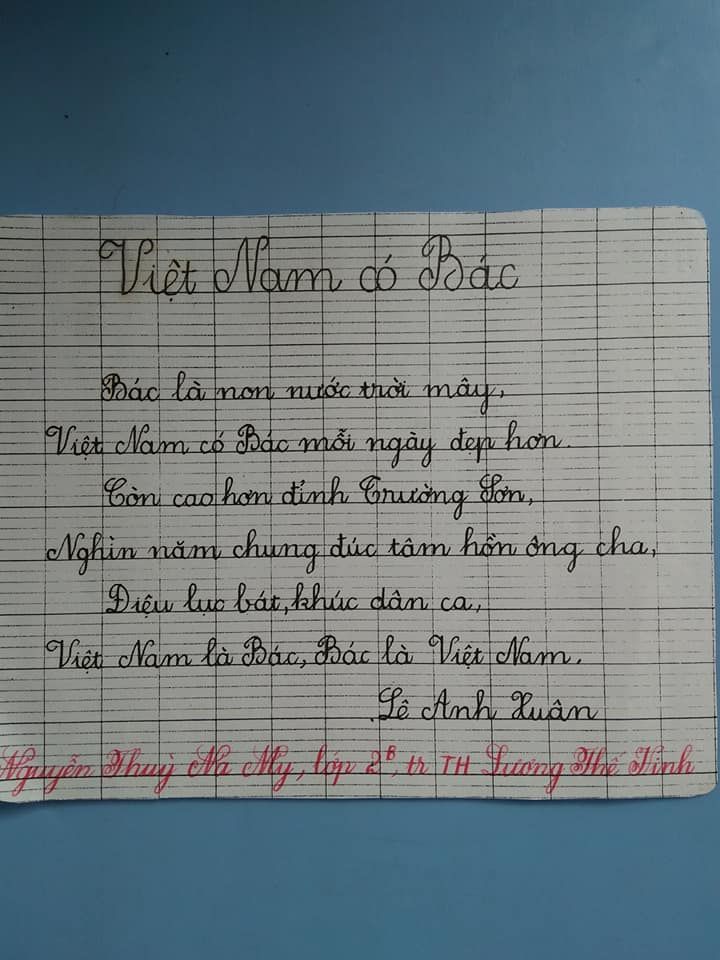 Việt Nam có Bác
Bác là non nước trời mây,
Việt Nam có Bác mỗi ngày đẹp hơn.
Còn cao hơn đỉnh Trường Sơn,
Nghìn năm chung đúc tâm hồn ông cha,
Điệu lục bát, khúc dân ca,
Việt Nam là Bác, Bác là Việt Nam.
Lê Anh Xuân
Nguyễn Thuỳ Na My, lớp 2B, tr TH Lương Thế Vinh